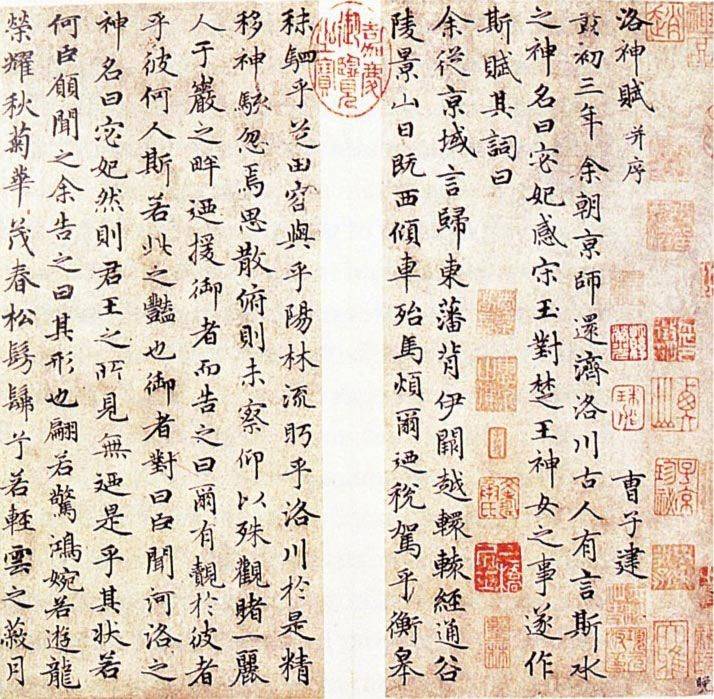 洛神賦 并序 曹子建
黃初三年余朝京師還濟洛川古人有言斯水
之神名曰宓妃感宋玉對楚王神女之事遂作
斯賦其詞曰
余從京域言歸東藩背伊闕越轘轅經通谷
陵景山日既西傾車殆馬煩爾迺稅駕乎衡皋
嘉慶御覽之寶
秣駟乎芝田容與乎陽林流眄乎洛川於是精
移神駭忽焉思散俯則未察仰以殊觀睹一麗
人于巖之畔迺援御者而告之曰爾有覿於彼者
乎彼何人斯若此之豔也御者對曰臣聞河洛之
神名曰宓妃然則君王之所見無迺是乎其狀若
何臣願聞之余告之曰其形也翩若驚鴻婉若遊龍
榮耀秋菊華茂春松髣髴兮若輕雲之蔽月